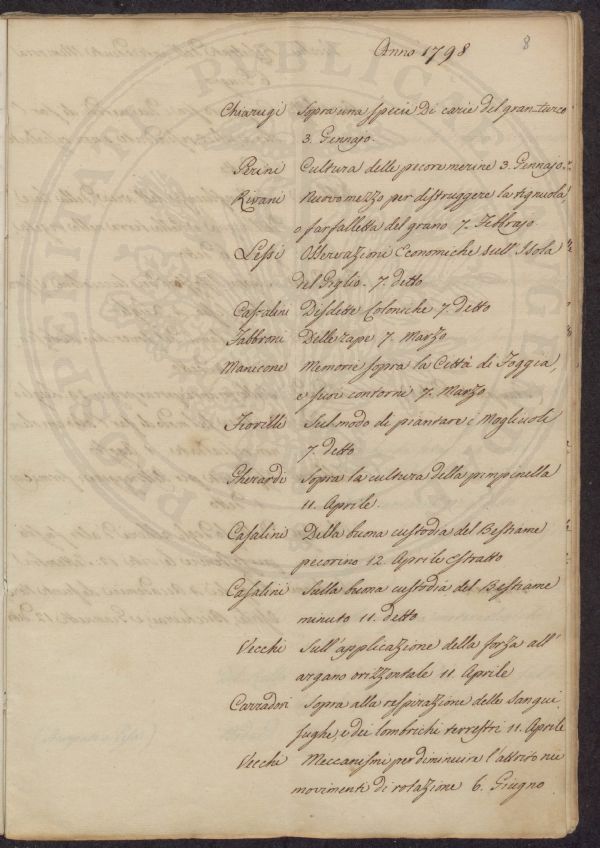 Anno 1798
8
Chiarugi Sopra una specie Di carie del gran-turco
3. Gennajo.
Perini Cultura delle pecore merine 3. Gennajo.
Rivani Nuovo mezzo per distruggere la tignuola
o farfalletta del grano 7. Febbrajo
Lessi Osservazioni Economiche sull'Isola
del Giglio. 7. detto
Casalini Disdette Coloniche 7. detto
Fabbroni Delle rape 7. Marzo
Manicone Memorie sopra la Città di Foggia,
e suoi contorni 7. Marzo
Fiorilli Sul modo di piantare i Magliuoli
7. detto
Gherardi Sopra la cultura della pimpinella
11. Aprile.
Casalini Della buona custodia del Bestiame
pecorino 12. Aprile estratto
Casalini Sulla buona custodia del Bestiame
minuto 11. detto
Vecchi Sull'applicazione della forza all'
argano orizzontale 11. Aprile
Carradori Sopra alla respirazione delle Sangui,
sughe, e dei lombrichi terrestri 11. Aprile
Vecchi Meccanismi per diminuire l'attrito nei
movimenti di rotazione 6. Giugno
PROSPERITATI PUBLICAE AUGENDAE